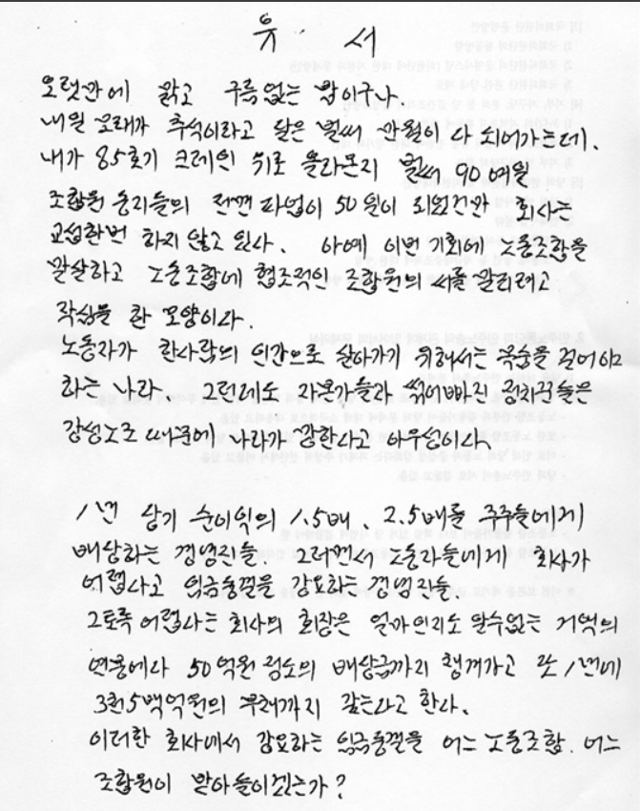 유 서
오랫만에 맑고 구름없는 밤이구나.
내일 모래가 추석이라고 달은 벌써 만월이 다 되어가는데.
내가 85호기 크레인 위로 올라온지 벌써 90여일
조합원 동지들의 전면파업이 50일이 되었건만 회사는
교섭한번 하지 않고 있다. 아예 이번 기회에 노동조합을
말살하고 노동조합에 협조적인 조합원의 씨를 말리려고
작심을 한 모양이다.
노동자가 한사람의 인간으로 살아가기 위해서는 목숨을 걸어야
하는 나라. 그런데도 자본가들과 썩어빠진 정치꾼들은
강성노조 때문에 나라가 망한다고 아우성이다.
1년 당기 순이익의 1.5배, 2.5배를 주주들에게
배당하는 경영진들. 그러면서 노동자들에게 회사가
어렵다고 임금동결을 강요하는 경영진들.
그토록 어렵다는 회사의 회장은 얼마인지도 알수없는 거액의
연봉에다 50억원 정도의 배당금까지 챙겨가고 또 1년에
3천5백억원의 부채까지 갚는다고 한다.
이러한 회사에서 강요하는 임금동결을 어느 노동조합. 어느
조합원이 받아들이겠는가?